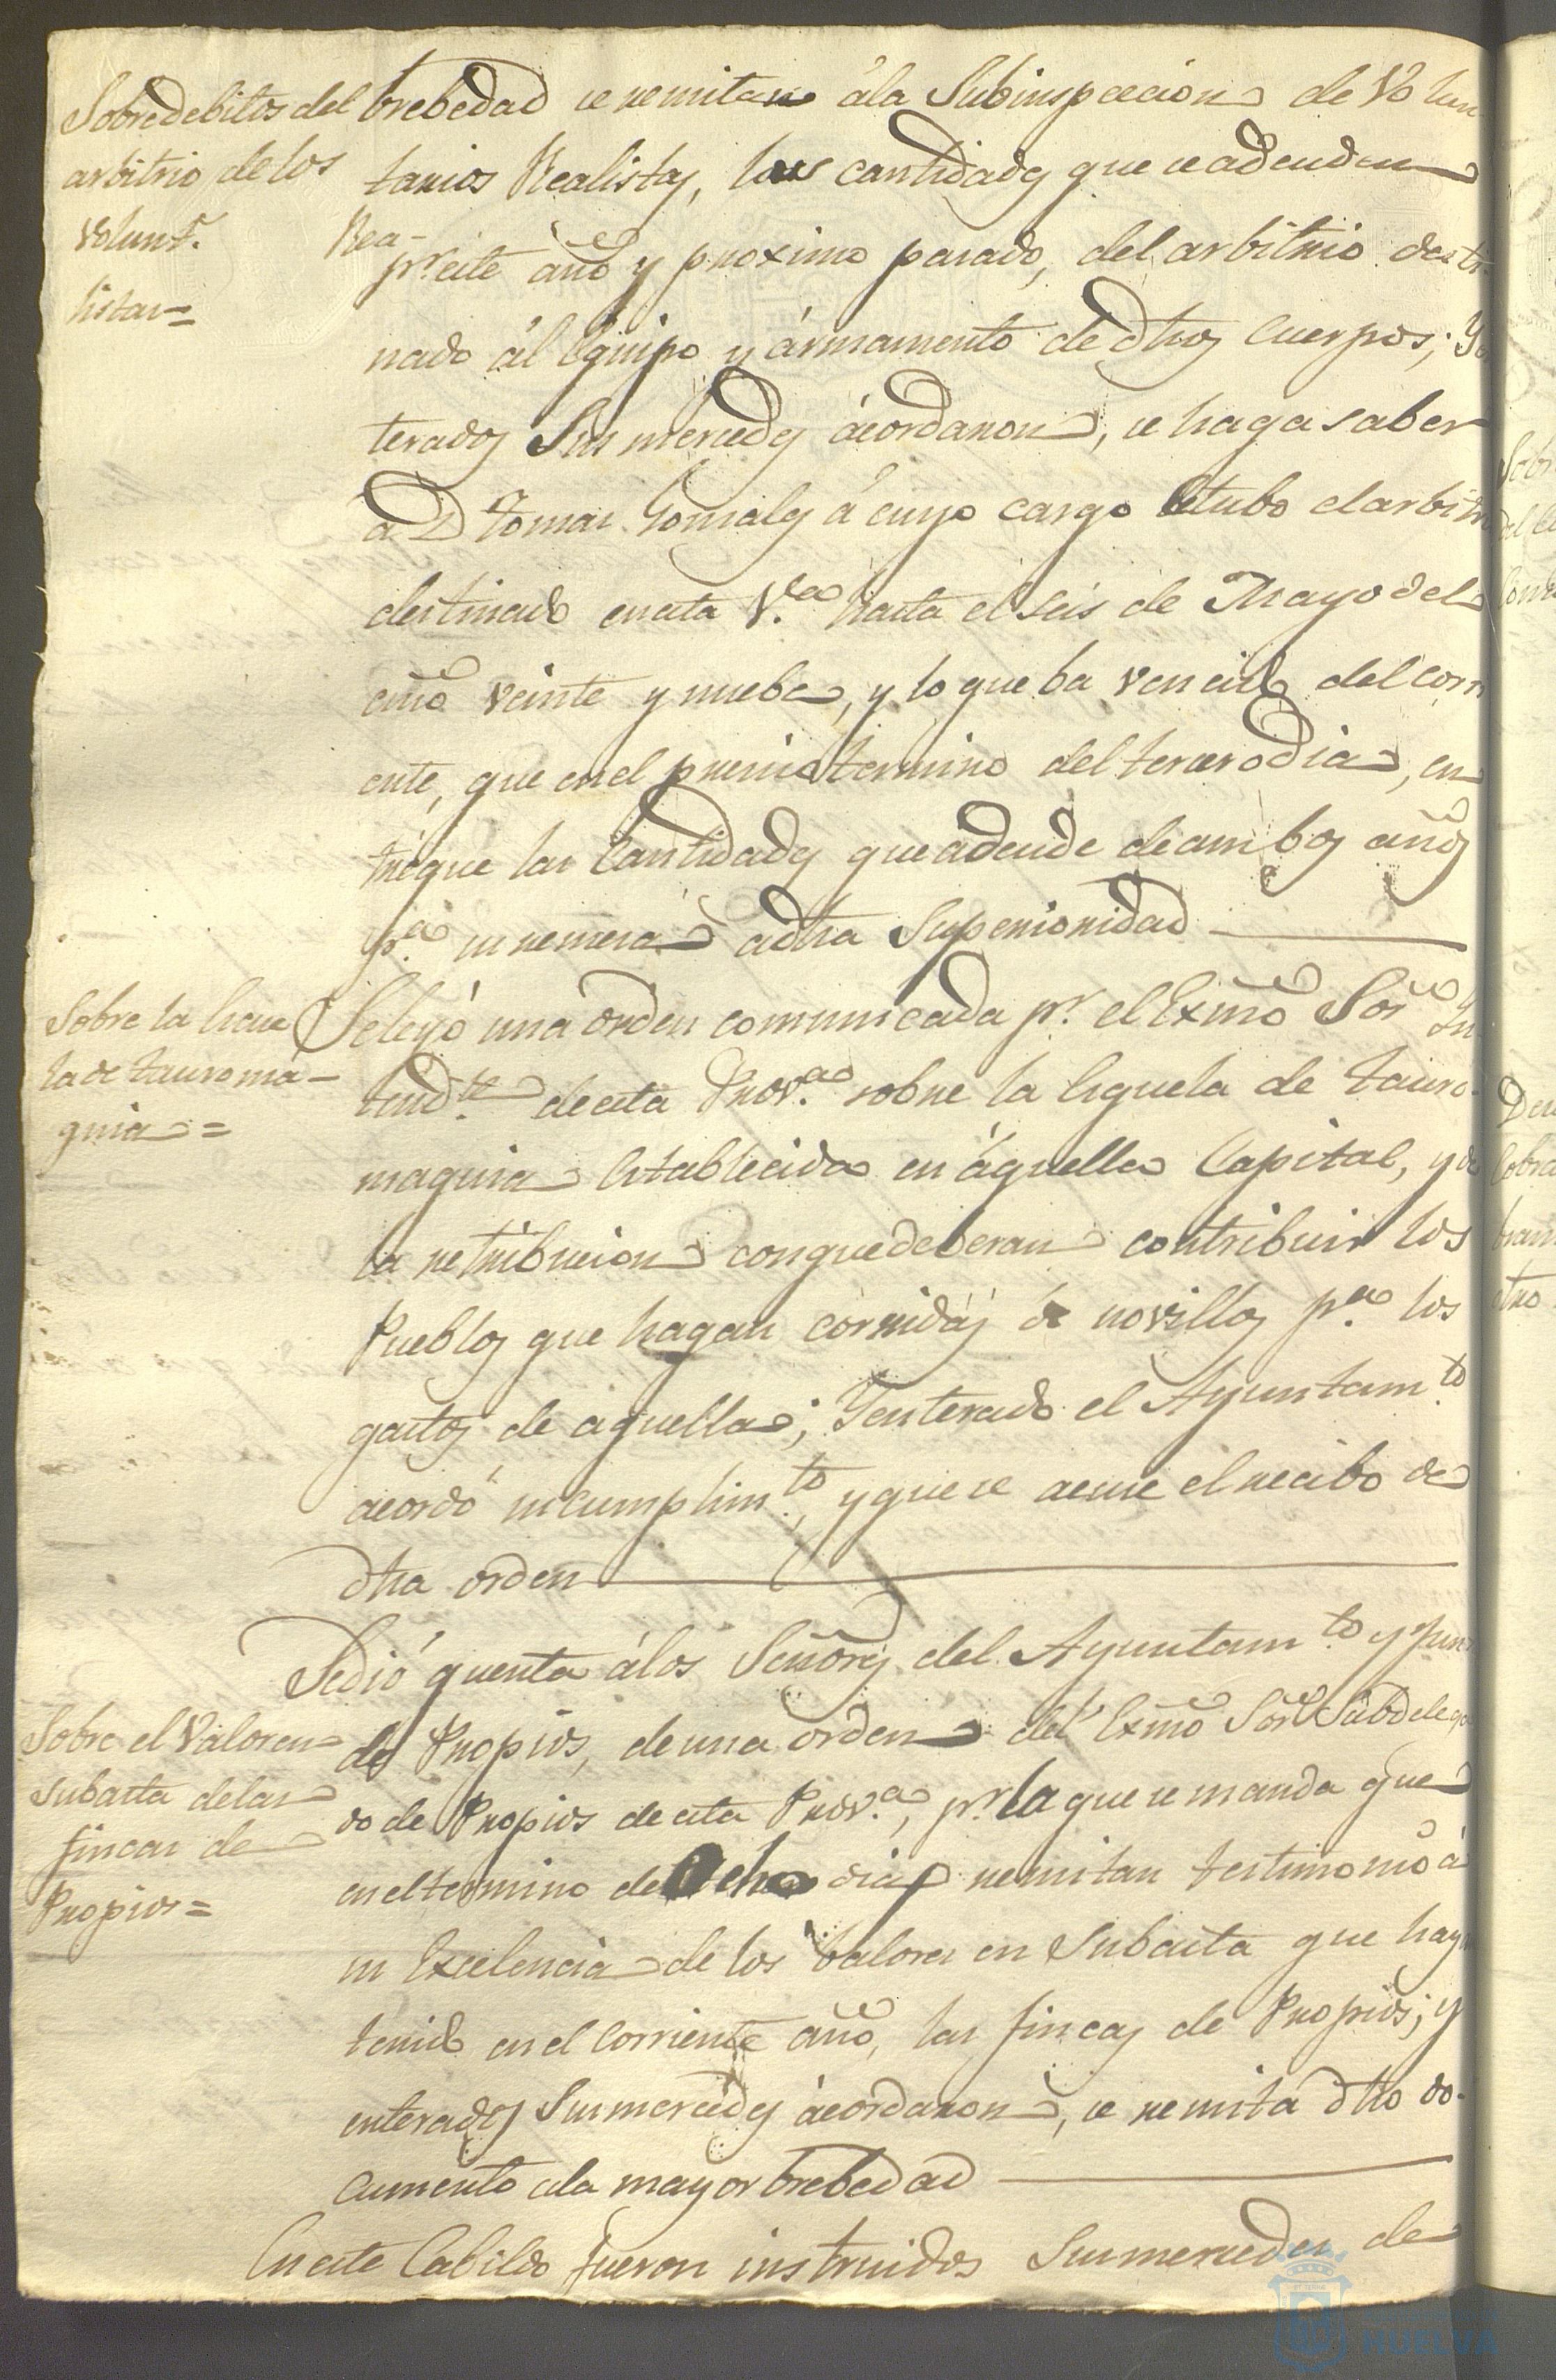 Sobre debitos del
arbitrio de los
Volunt.s Rea-
listas=
brebedad se remitan á la Subinspeccion de Volun
tarios Realistas, las cantidades que se adeuden
pr. este año y proximo pasado, del arbitrio desti
nado ál Equipo y ármamento de dhos Cuerpos; Yn
terados Sus mercedes ácordaron, se haga saber
a Dn Tomas Gonsales á cuyo cargo estubo el arbitrio
destinado en esta Va. hasta el seis de Mayo del
año veinte y nuebe, y lo que ba vencido del corri
ente, que en el preciso termino del tercero dia, en
trégue las Cantidades que adeude de ambos años
pa. su remesa á dha Superioridad
Sobre la Escue
la de tauromá-
quia=
Se leyó una orden comunicada pr. el Exmo Sor. In
tendte. de esta Prova. sobre la Esquela de tauro-
maquia Establecida en áquella Capital, y de
la retribucion con que deberan contribuir los
Pueblos que hagan córridas de novillos pa. los
gastos de aquella; Y enterado el Ayuntamto.
acordó su cumplimto., y que se acuse el recibo de
dha orden
Sobre el Valor en
Subasta de las
fincas de
Propios=
Se dió quenta á los Señores del Ayuntamto. y Junta
de Propios, de una orden del Exmo Sor. Subdelega
do de Propios de esta Prova., pr. la que se manda que
en el termino de Ocho dias remitan testimonio á
su Excelencia de los Valores en Subasta que hayn
tenido en el Corriente año, las fincas de Propios; y
enterados Sus mercedes ácordaron, se remita dho do-
cumento á la mayor brebedad
En este Cabildo fueron instruidos Sus mercedes de
HUELVA